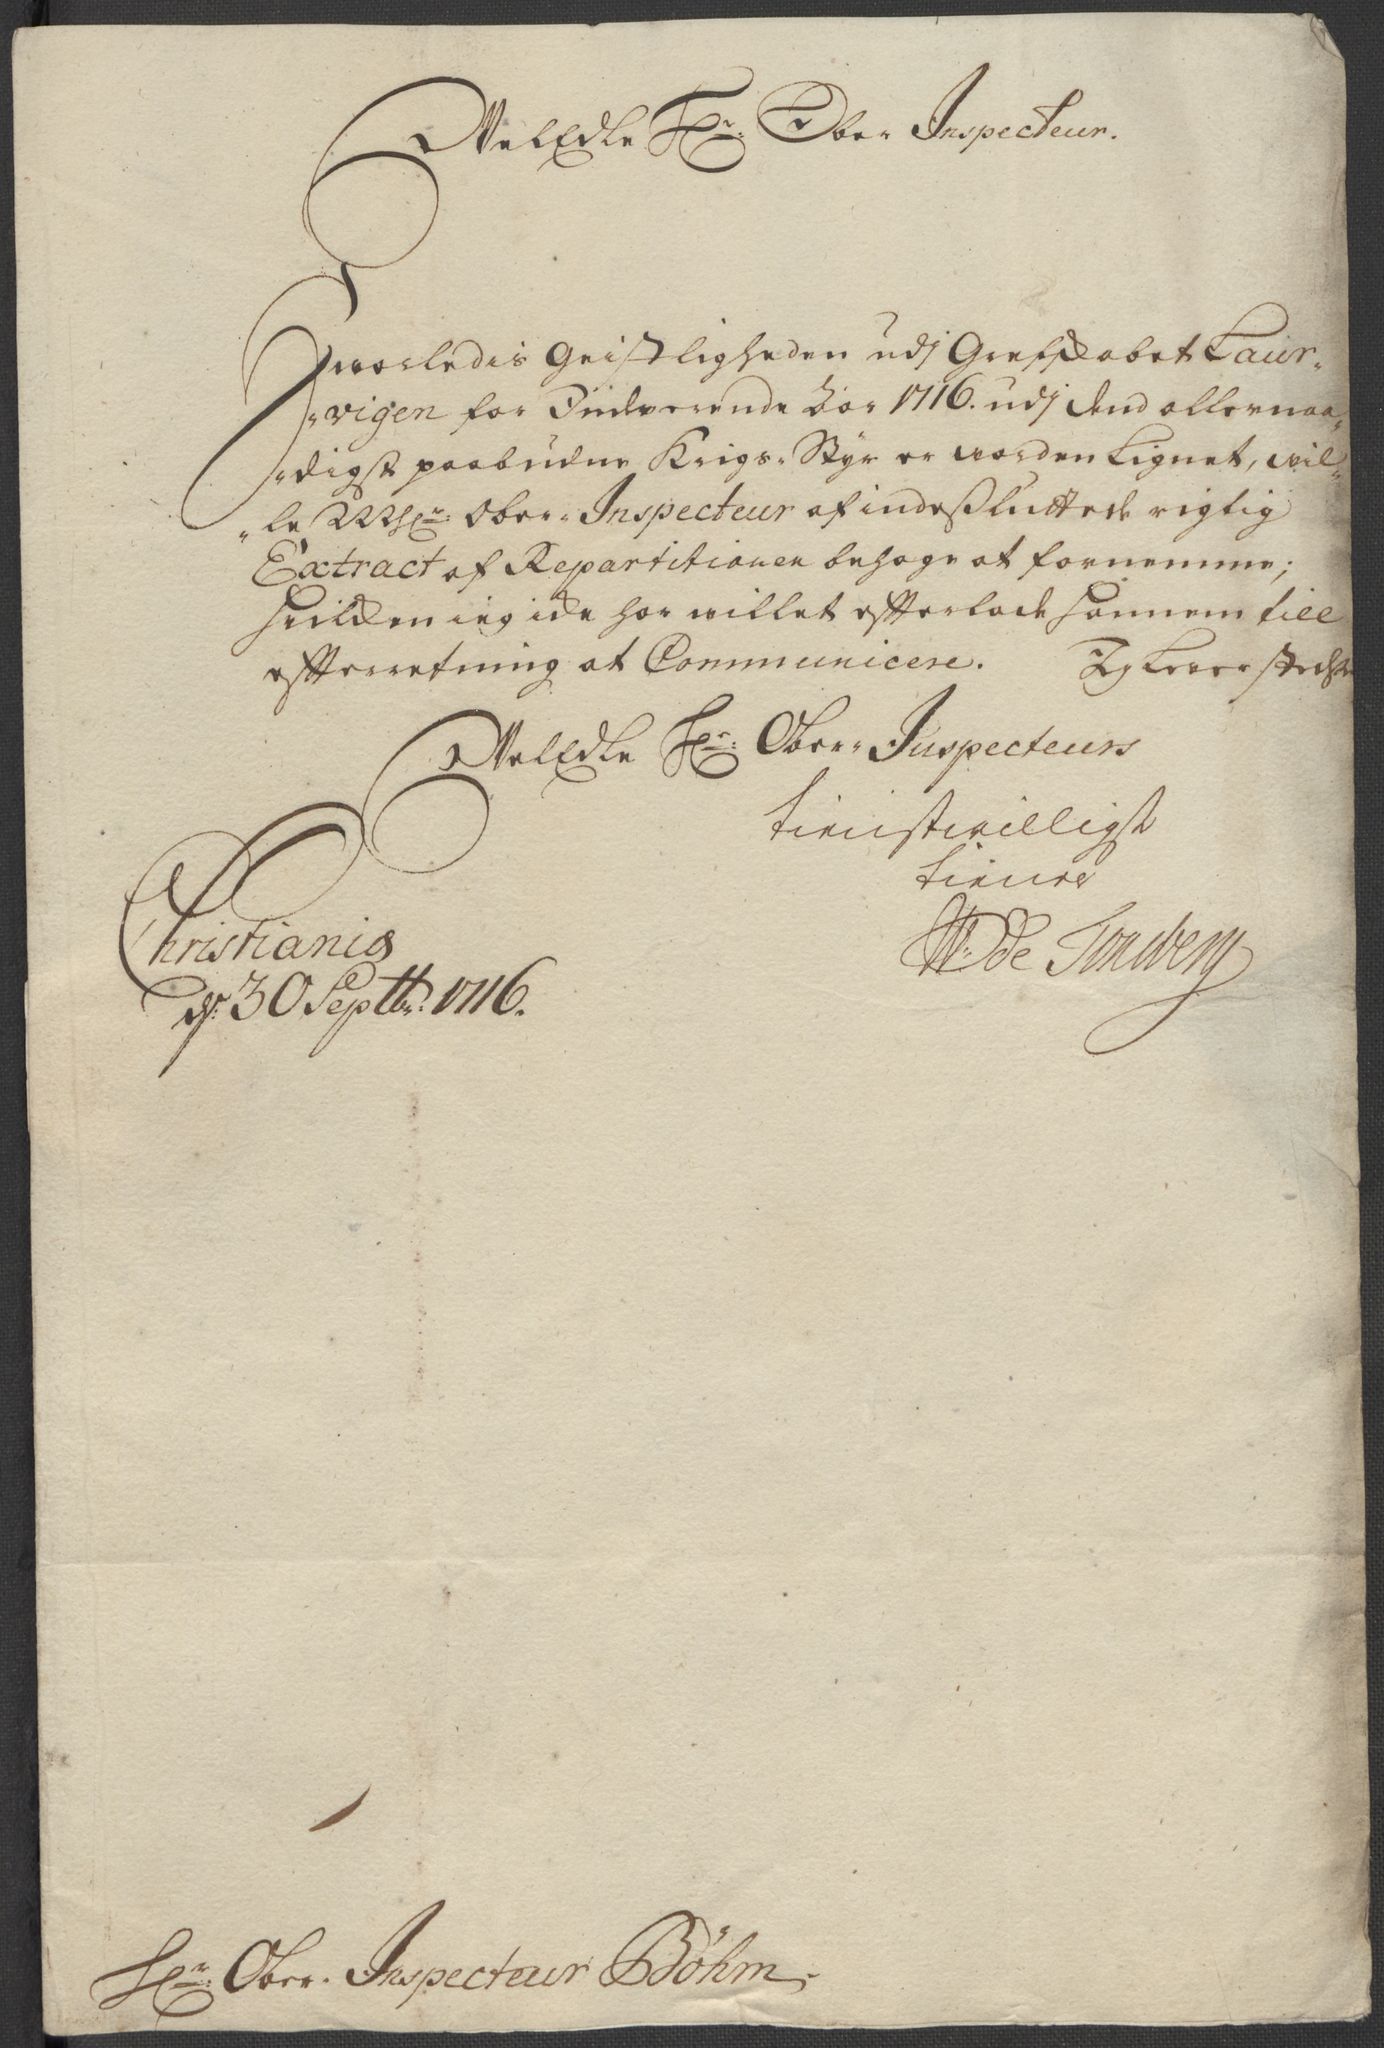 Velædle Hr: Ober Inspecteur.
Hvorledis Geistligheden udj Grefskabet Laur-
-vigen for Indeverende Aar 1716. udj dend allernaa-
-digst paabudne Krigs-Styr er worden Lignet, wil-
-le Hr: Ober-Inspecteur af indesluttede rigtig
Extract af Repartitionen behage at fornemme;
hvilken ieg ide har willet efterlade hannem till
efterretning at Communicere. Jeg lever stedse
Velædle Hr: Ober-Inspecteurs
tienstwilligst
tiener
W: de Tonsberg
Christiania
d: 30 Septbr: 1716.
Hr: Ober-Inspecteur Bøhm.